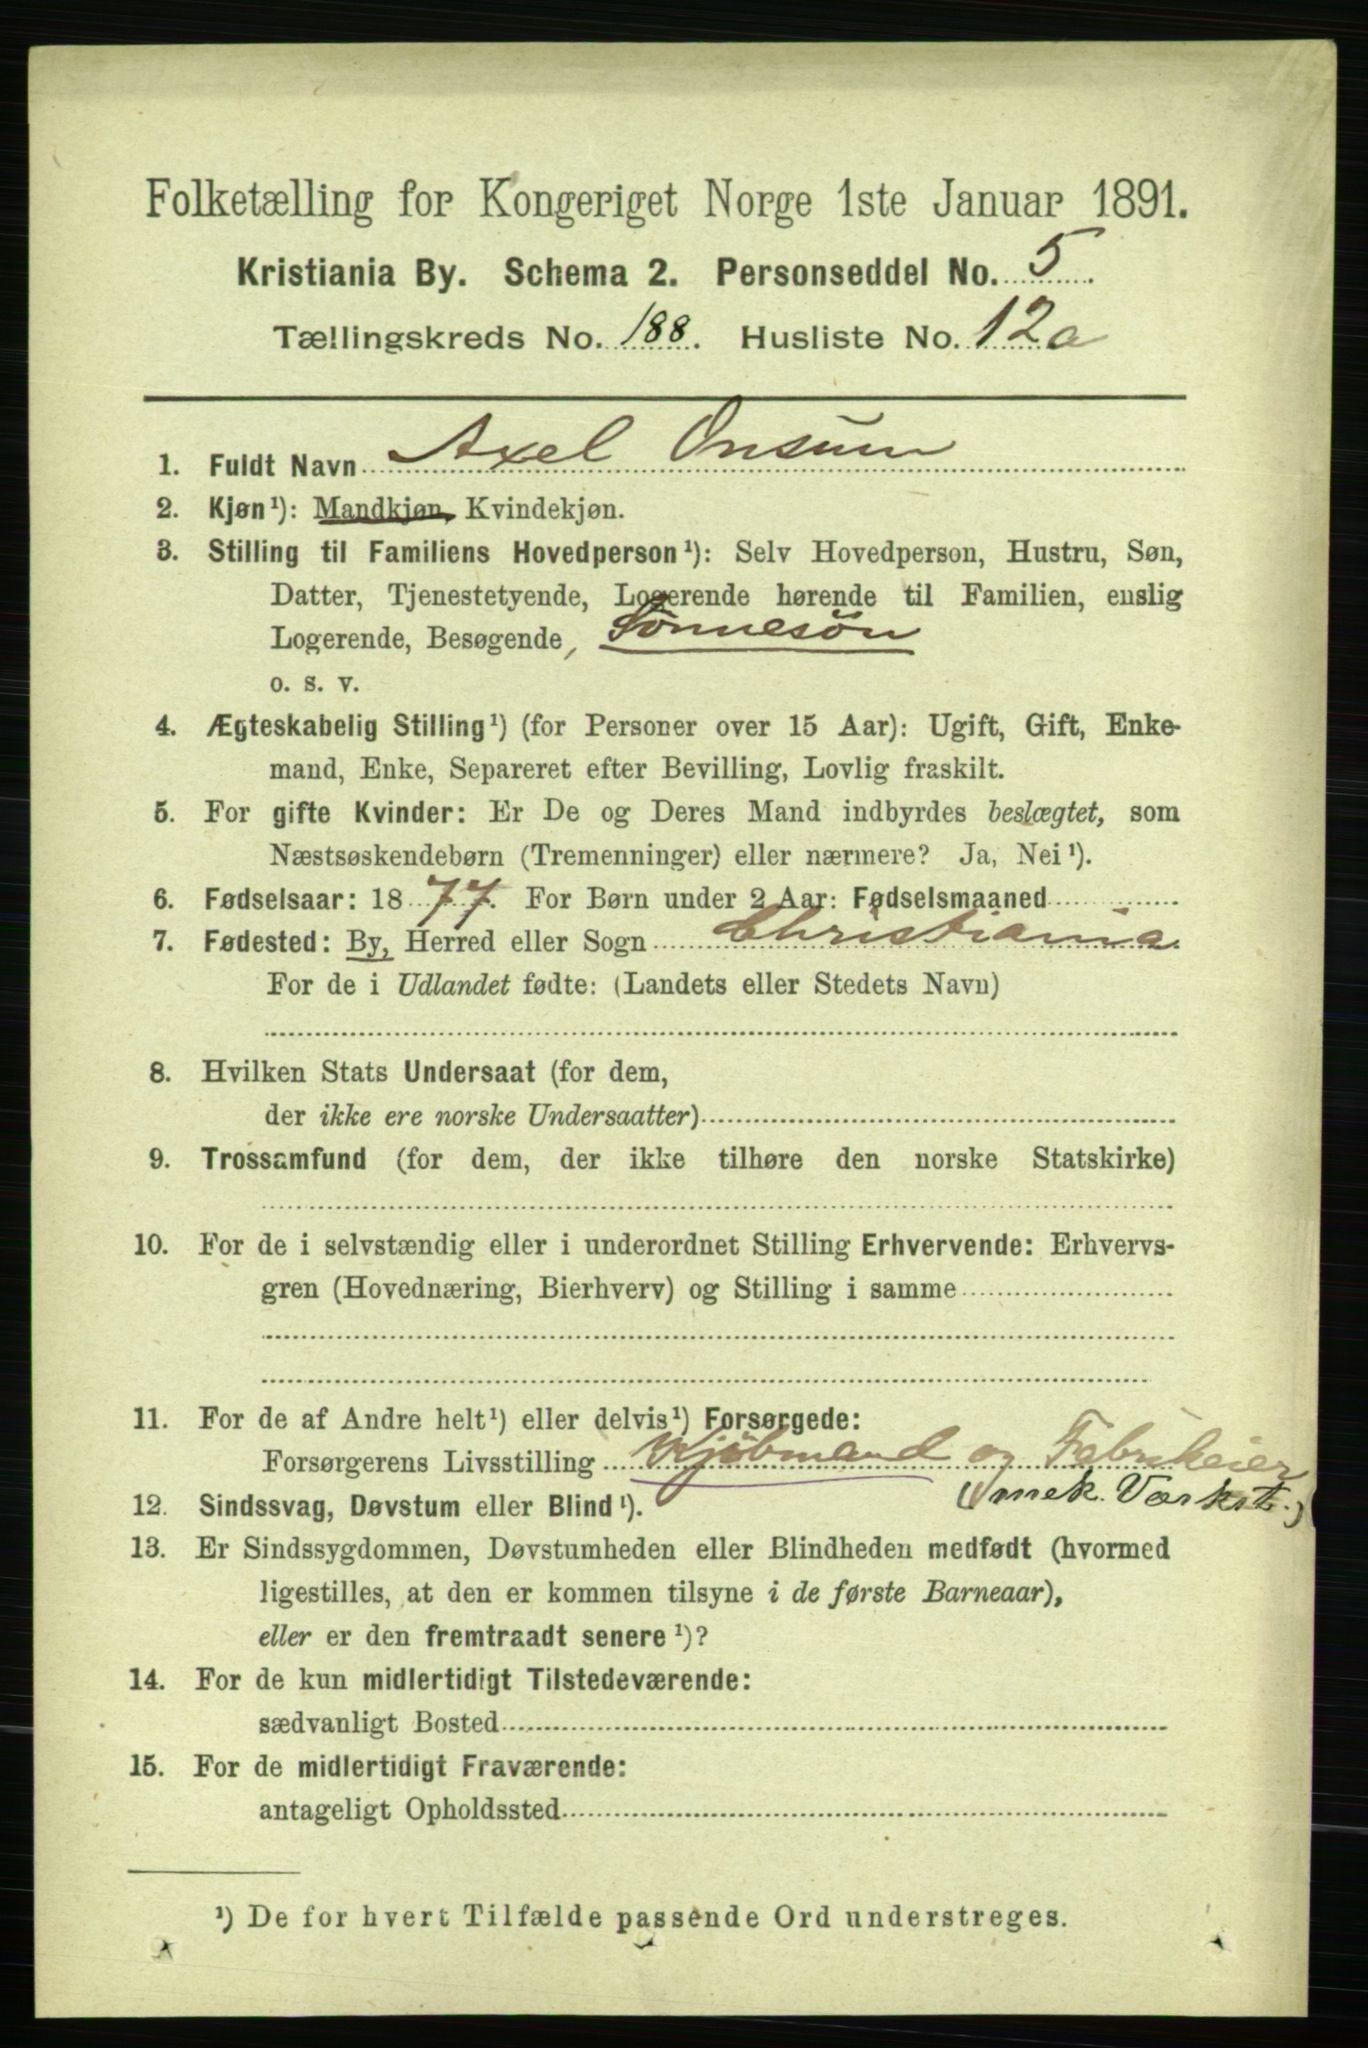 Folketælling for Kongeriget Norge 1ste Januar 1891.
Kristiania By. Schema 2. Personseddel No. 5
Tællingskreds No. 188. Husliste No. 12a
1. Fuldt Navn Axel Onsum
2. Kjøn¹): Mandkjøn, Kvindekjøn.
3. Stilling til Familiens Hovedperson¹): Selv Hovedperson, Hustru, Søn,
Datter, Tjenestetyende, Logerende hørende til Familien, enslig
Logerende, Besøgende, Sönnesön
o. s. v.
4. Ægteskabelig Stilling¹) (for Personer over 15 Aar): Ugift, Gift, Enke-
mand, Enke, Separeret efter Bevilling, Lovlig fraskilt.
5. For gifte Kvinder: Er De og Deres Mand indbyrdes beslægtet, som
Næstsøskendebørn (Tremenninger) eller nærmere? Ja, Nei¹).
6. Fødselsaar: 1877. For Børn under 2 Aar: Fødselsmaaned
7. Fødested: By, Herred eller Sogn Christiania
For de i Udlandet fødte: (Landets eller Stedets Navn)
8. Hvilken Stats Undersaat (for dem,
der ikke ere norske Undersaatter)
9. Trossamfund (for dem, der ikke tilhøre den norske Statskirke)
10. For de i selvstændig eller i underordnet Stilling Erhvervende: Erhvervs-
gren (Hovednæring, Bierhverv) og Stilling i samme
11. For de af Andre helt¹) eller delvis¹) Forsørgede:
Forsørgerens Livsstilling Kjöbmand og Fabrikeier
(mek. Værkst.)
12. Sindssvag, Døvstum eller Blind¹).
13. Er Sindssygdommen, Døvstumheden eller Blindheden medfødt (hvormed
ligestilles, at den er kommen tilsyne i de første Barneaar),
eller er den fremtraadt senere¹)?
14. For de kun midlertidigt Tilstedeværende:
sædvanligt Bosted
15. For de midlertidigt Fraværende:
antageligt Opholdssted
¹) De for hvert Tilfælde passende Ord understreges.